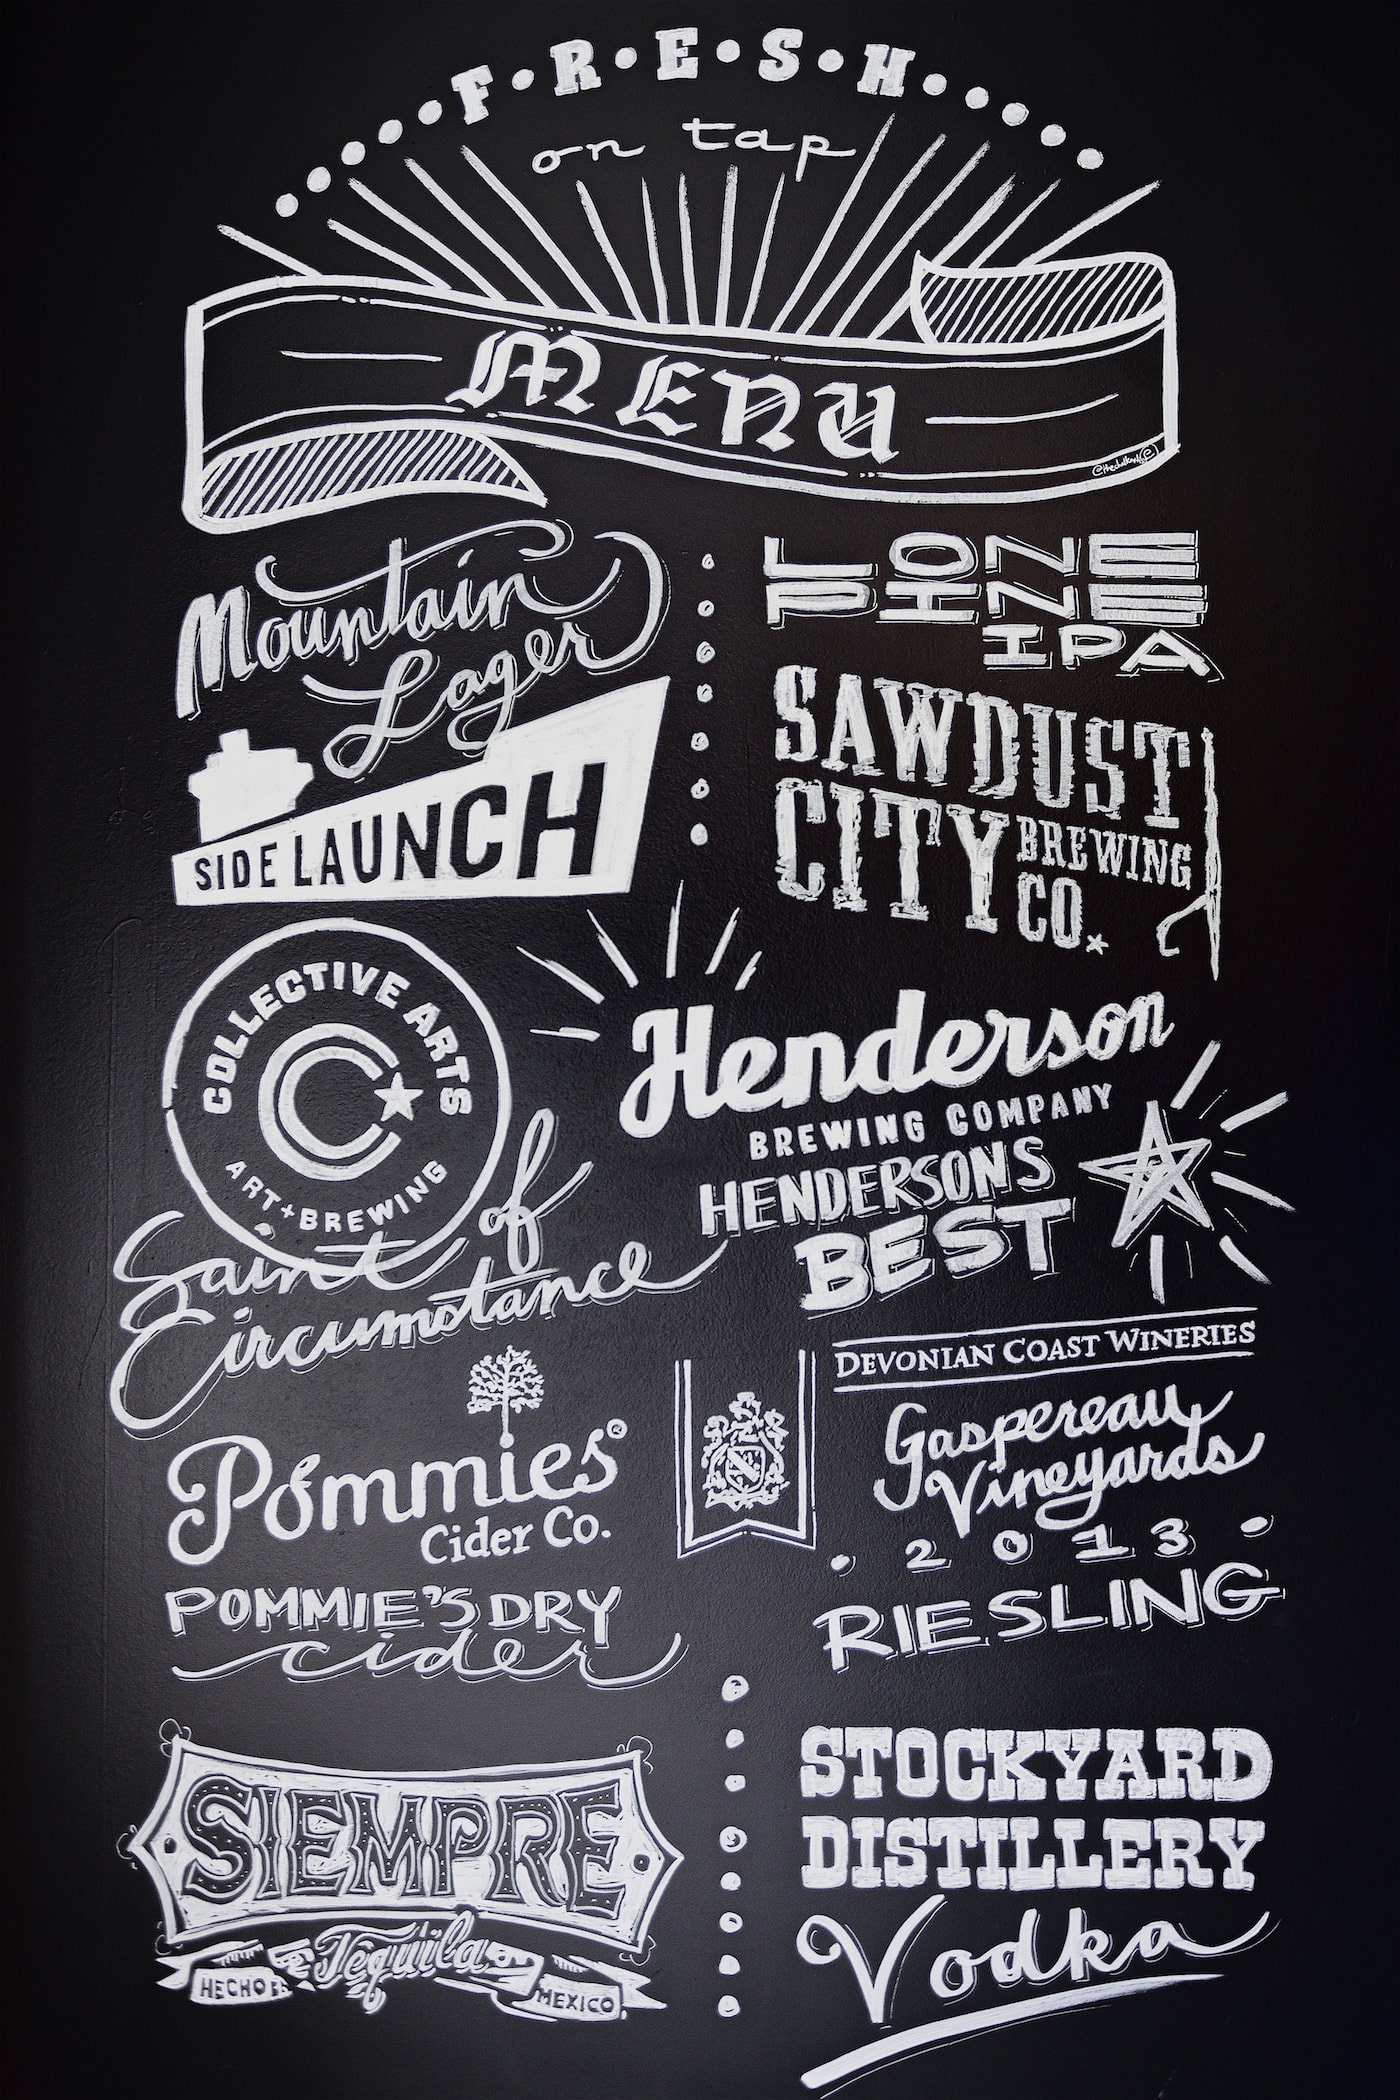 F·R·E·S·H
on tap
MENU
Mountain
Lager
SIDE LAUNCH
LONE
PINE
IPA
SAWDUST
CITY BREWING
CO.
COLLECTIVE ARTS
ART+BREWING
Saint of
Circumstance
Henderson
BREWING COMPANY
HENDERSONS
BEST
Pommies®
Cider Co.
POMMIE'S DRY
cider
DEVONIAN COAST WINERIES
Gaspereau
Vineyards
· 2 0 1 3 ·
RIESLING
SIEMPRE
Tequila
HECHO EN
MEXICO
STOCKYARD
DISTILLERY
Vodka